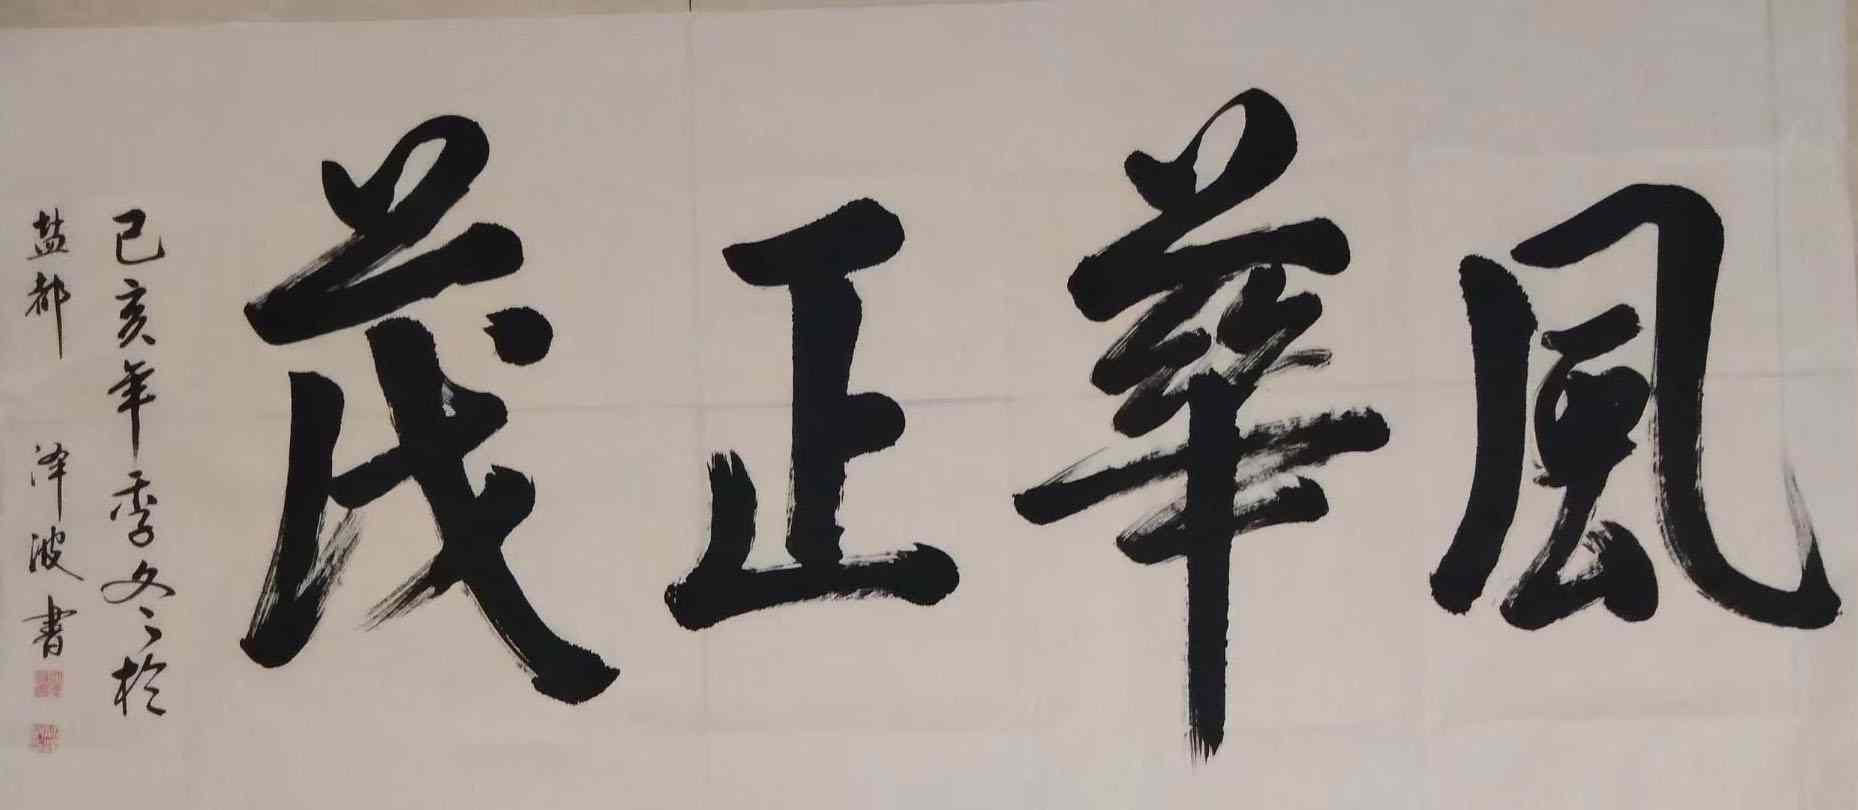 風華正茂
己亥年季冬於
盐都 泽波書